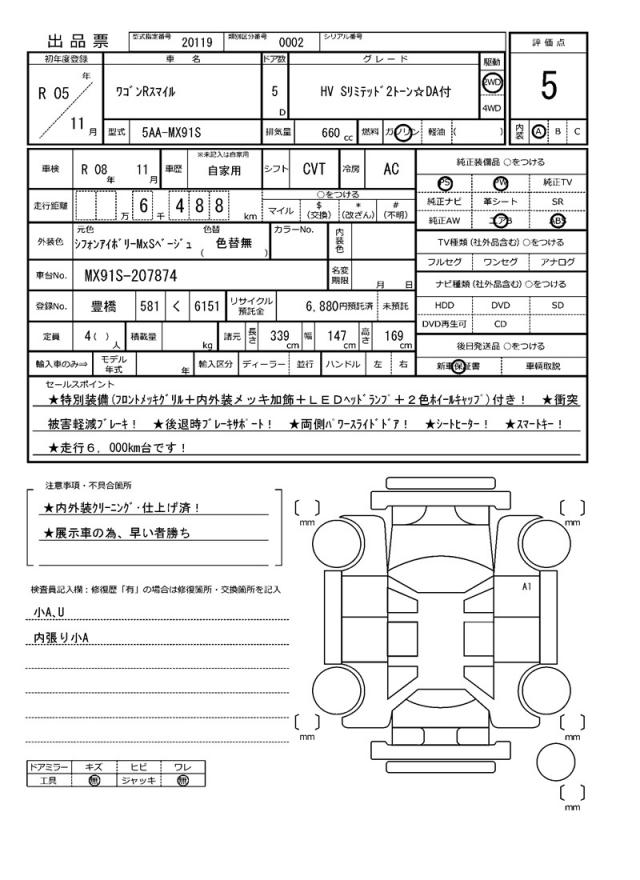 出品票 型式指定番号 20119 類別区分番号 0002 シリアル番号
評価点
5
内装 A B C
初年度登録 車名 ドア数 グレード 駆動
R 05 年 11 月
ワゴンRスマイル
5 D
HV Sリミテッド2トーン☆DA付
2WD
4WD
型式 5AA-MX91S 排気量 660 cc 燃料 ガソリン 軽油 ( )
車検 R 08 年 11 月 車歴 ※未記入は自家用 自家用 シフト CVT 冷房 AC
走行距離 万 6 千 4 8 8 km
○をつける
マイル $(交換) *(改ざん) #(不明)
外装色 元色 シフォンアイボリーMxSベージュ 色替 ( 色替無 ) カラーNo. 内装色
車台No. MX91S-207874 名変期限 月 日
登録No. 豊橋 581 く 6151 リサイクル預託金 6,880円預託済 未預託
定員 4( ) 人 積載量 kg 諸元 長さ 339 cm 幅 147 cm 高さ 169 cm
輸入車のみ⇒ モデル年式 年 輸入区分 ディーラー 並行 ハンドル 左 右
純正装備品 ○をつける
PS PW 純正TV
純正ナビ 革シート SR
純正AW エアB ABS
TV種類 (社外品含む) ○をつける
フルセグ ワンセグ アナログ
ナビ種類 (社外品含む) ○をつける
HDD DVD SD
DVD再生可 CD
後日発送品 ○をつける
新車保証書 車輌取説
セールスポイント
★特別装備(フロントメッキグリル+内外装メッキ加飾+LEDヘッドランプ+2色ホイールキャップ)付き! ★衝突
被害軽減ブレーキ! ★後退時ブレーキサポート! ★両側パワースライドドア! ★シートヒーター! ★スマートキー!
★走行6,000km台です!
注意事項・不具合箇所
★内外装クリーニング・仕上げ済!
★展示車の為、早い者勝ち
検査員記入欄:修復歴「有」の場合は修復箇所・交換箇所を記入
小A、U
内張り小A
ドアミラー キズ ヒビ ワレ
工具 無 ジャッキ 無
mm
mm
A1
mm
mm
mm